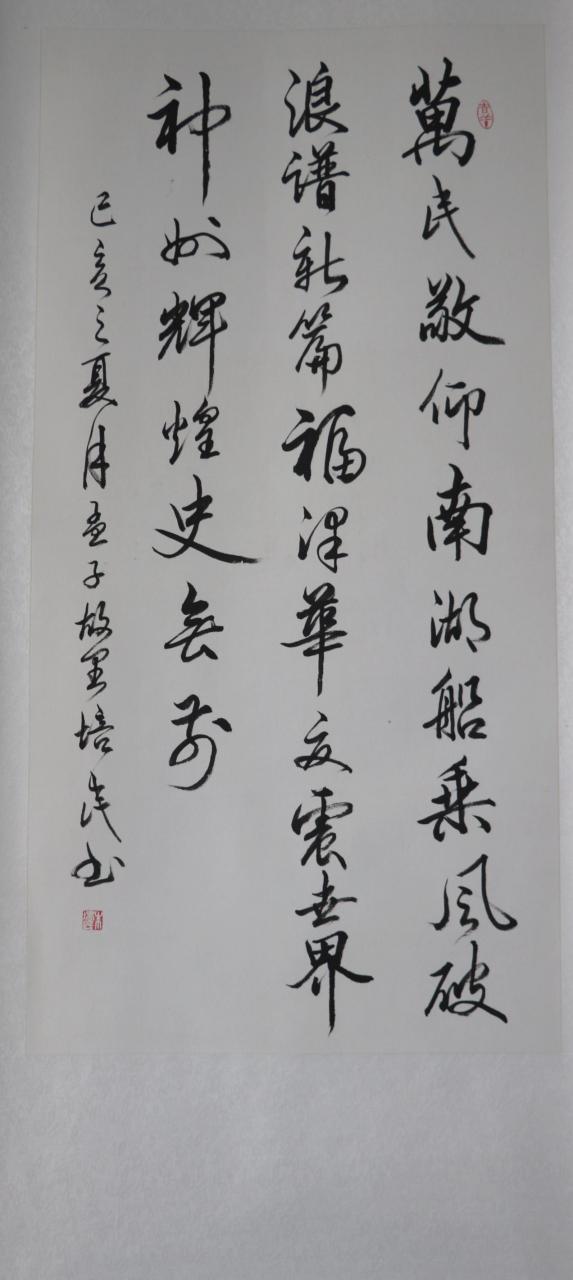 萬民敬仰南湖船乘风破
浪谱新篇福泽華夏震世界
神州輝煌史無前
己亥之夏月孟子故里培民书